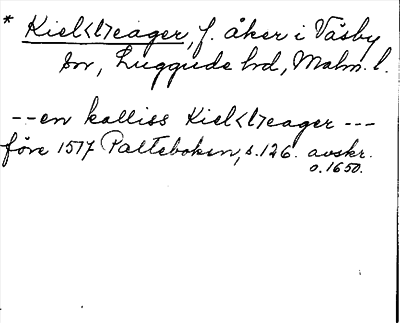 * Kiel<l>eager, f. åker i Väsby
sn, Luggude hd, Malm. l.
--en kalliss Kiel<l>eager ---
före 1517 Palteboken, s.126. avskr.
o.1650.